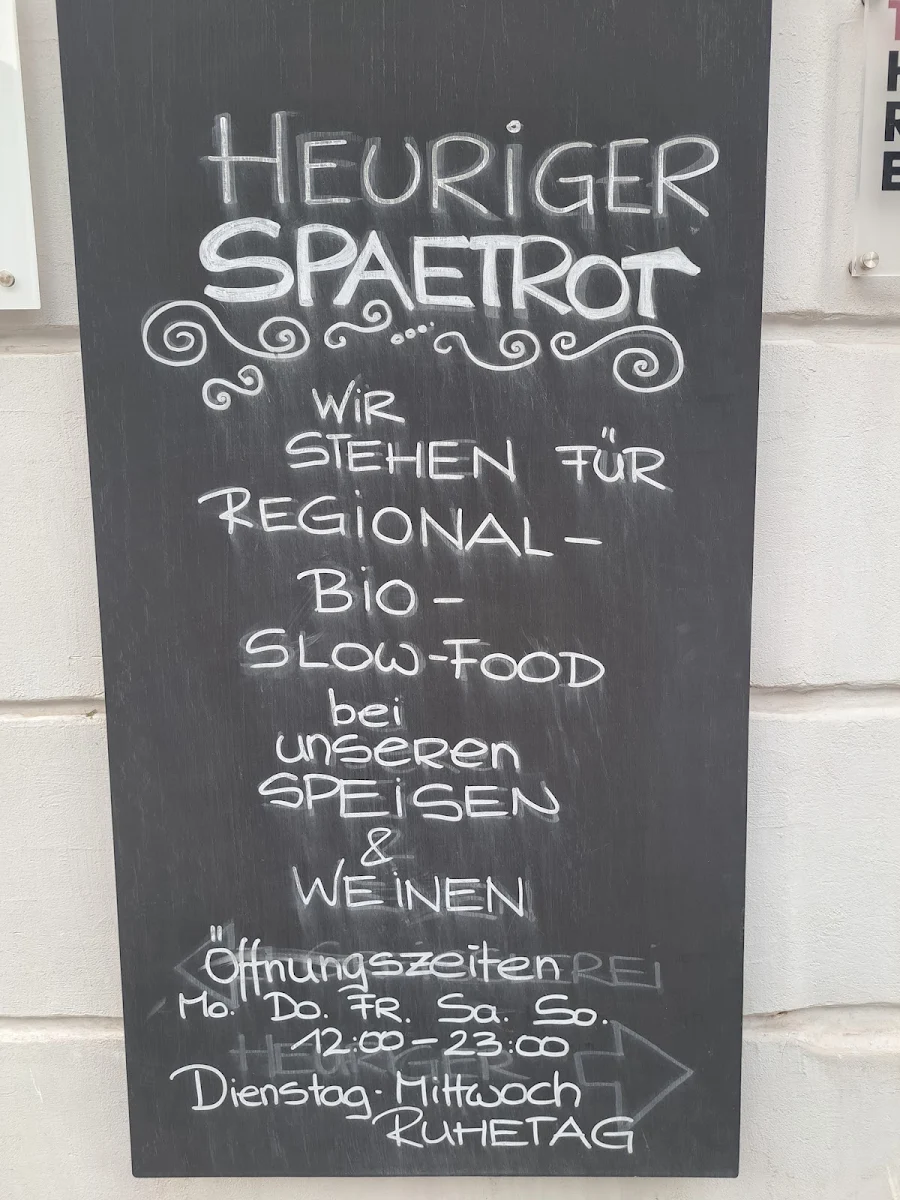 HEURiGER
SPAETROT
WiR
STEHEN FÜR
REGiONAL-
BiO-
SLOW-FOOD
bei
unseren
SPEiSEN
&
WEiNEN
Öffnungszeiten
Mo. Do. FR. Sa. So.
12:00-23:00
Dienstag-Mittwoch
RUHETAG
T
H
R
E